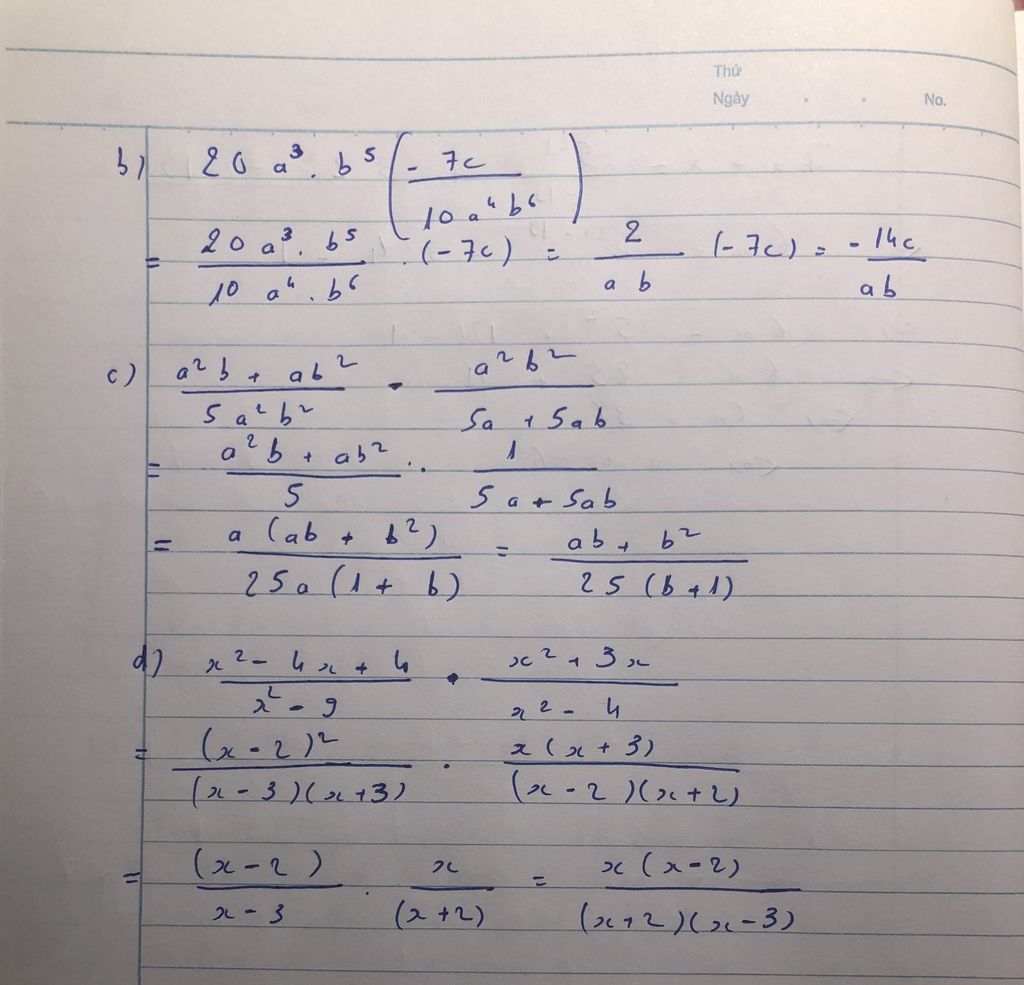 Thứ
Ngày . . No.
b) 20 a³ . b⁵ (- 7c / 10 a⁴ b⁶)
= 20 a³ . b⁵ / 10 a⁴ . b⁶ . (-7c) = 2 / a b (-7c) = - 14c / ab
c) a²b + ab² / 5 a² b² . a² b² / 5a + 5ab
= a²b + ab² / 5 .. 1 / 5a + 5ab
= a (ab + b²) / 25a (1 + b) = ab + b² / 25 (b+1)
d) x² - 4x + 4 / x² - 9 . x² + 3x / x² - 4
= (x - 2)² / (x - 3)(x+3) . x (x + 3) / (x - 2)(x+2)
= (x - 2) / x - 3 . x / (x+2) = x (x-2) / (x+2)(x-3)